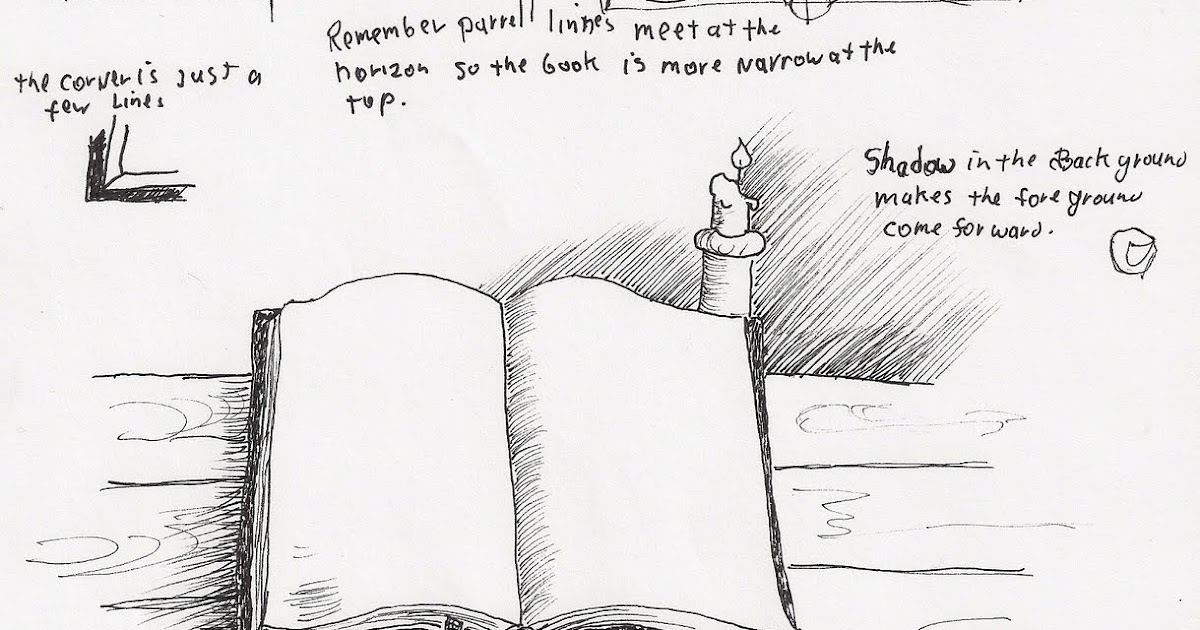 the corner is just a
few Lines
Remember parrell linnes meet at the
horizon so the book is more narrow at the
top.
Shadow in the Back ground
makes the fore ground
come forward.
©